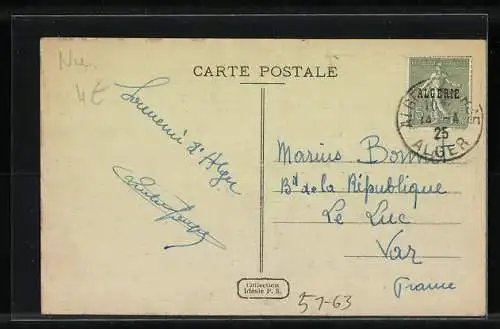 Nu.
4€
CARTE POSTALE
Souvenir d'Alger
ALGERIE
25
ALGER
Marius
Bd de la République
Le Luc
Var
France
Collection
Idéale P. S.
51-63